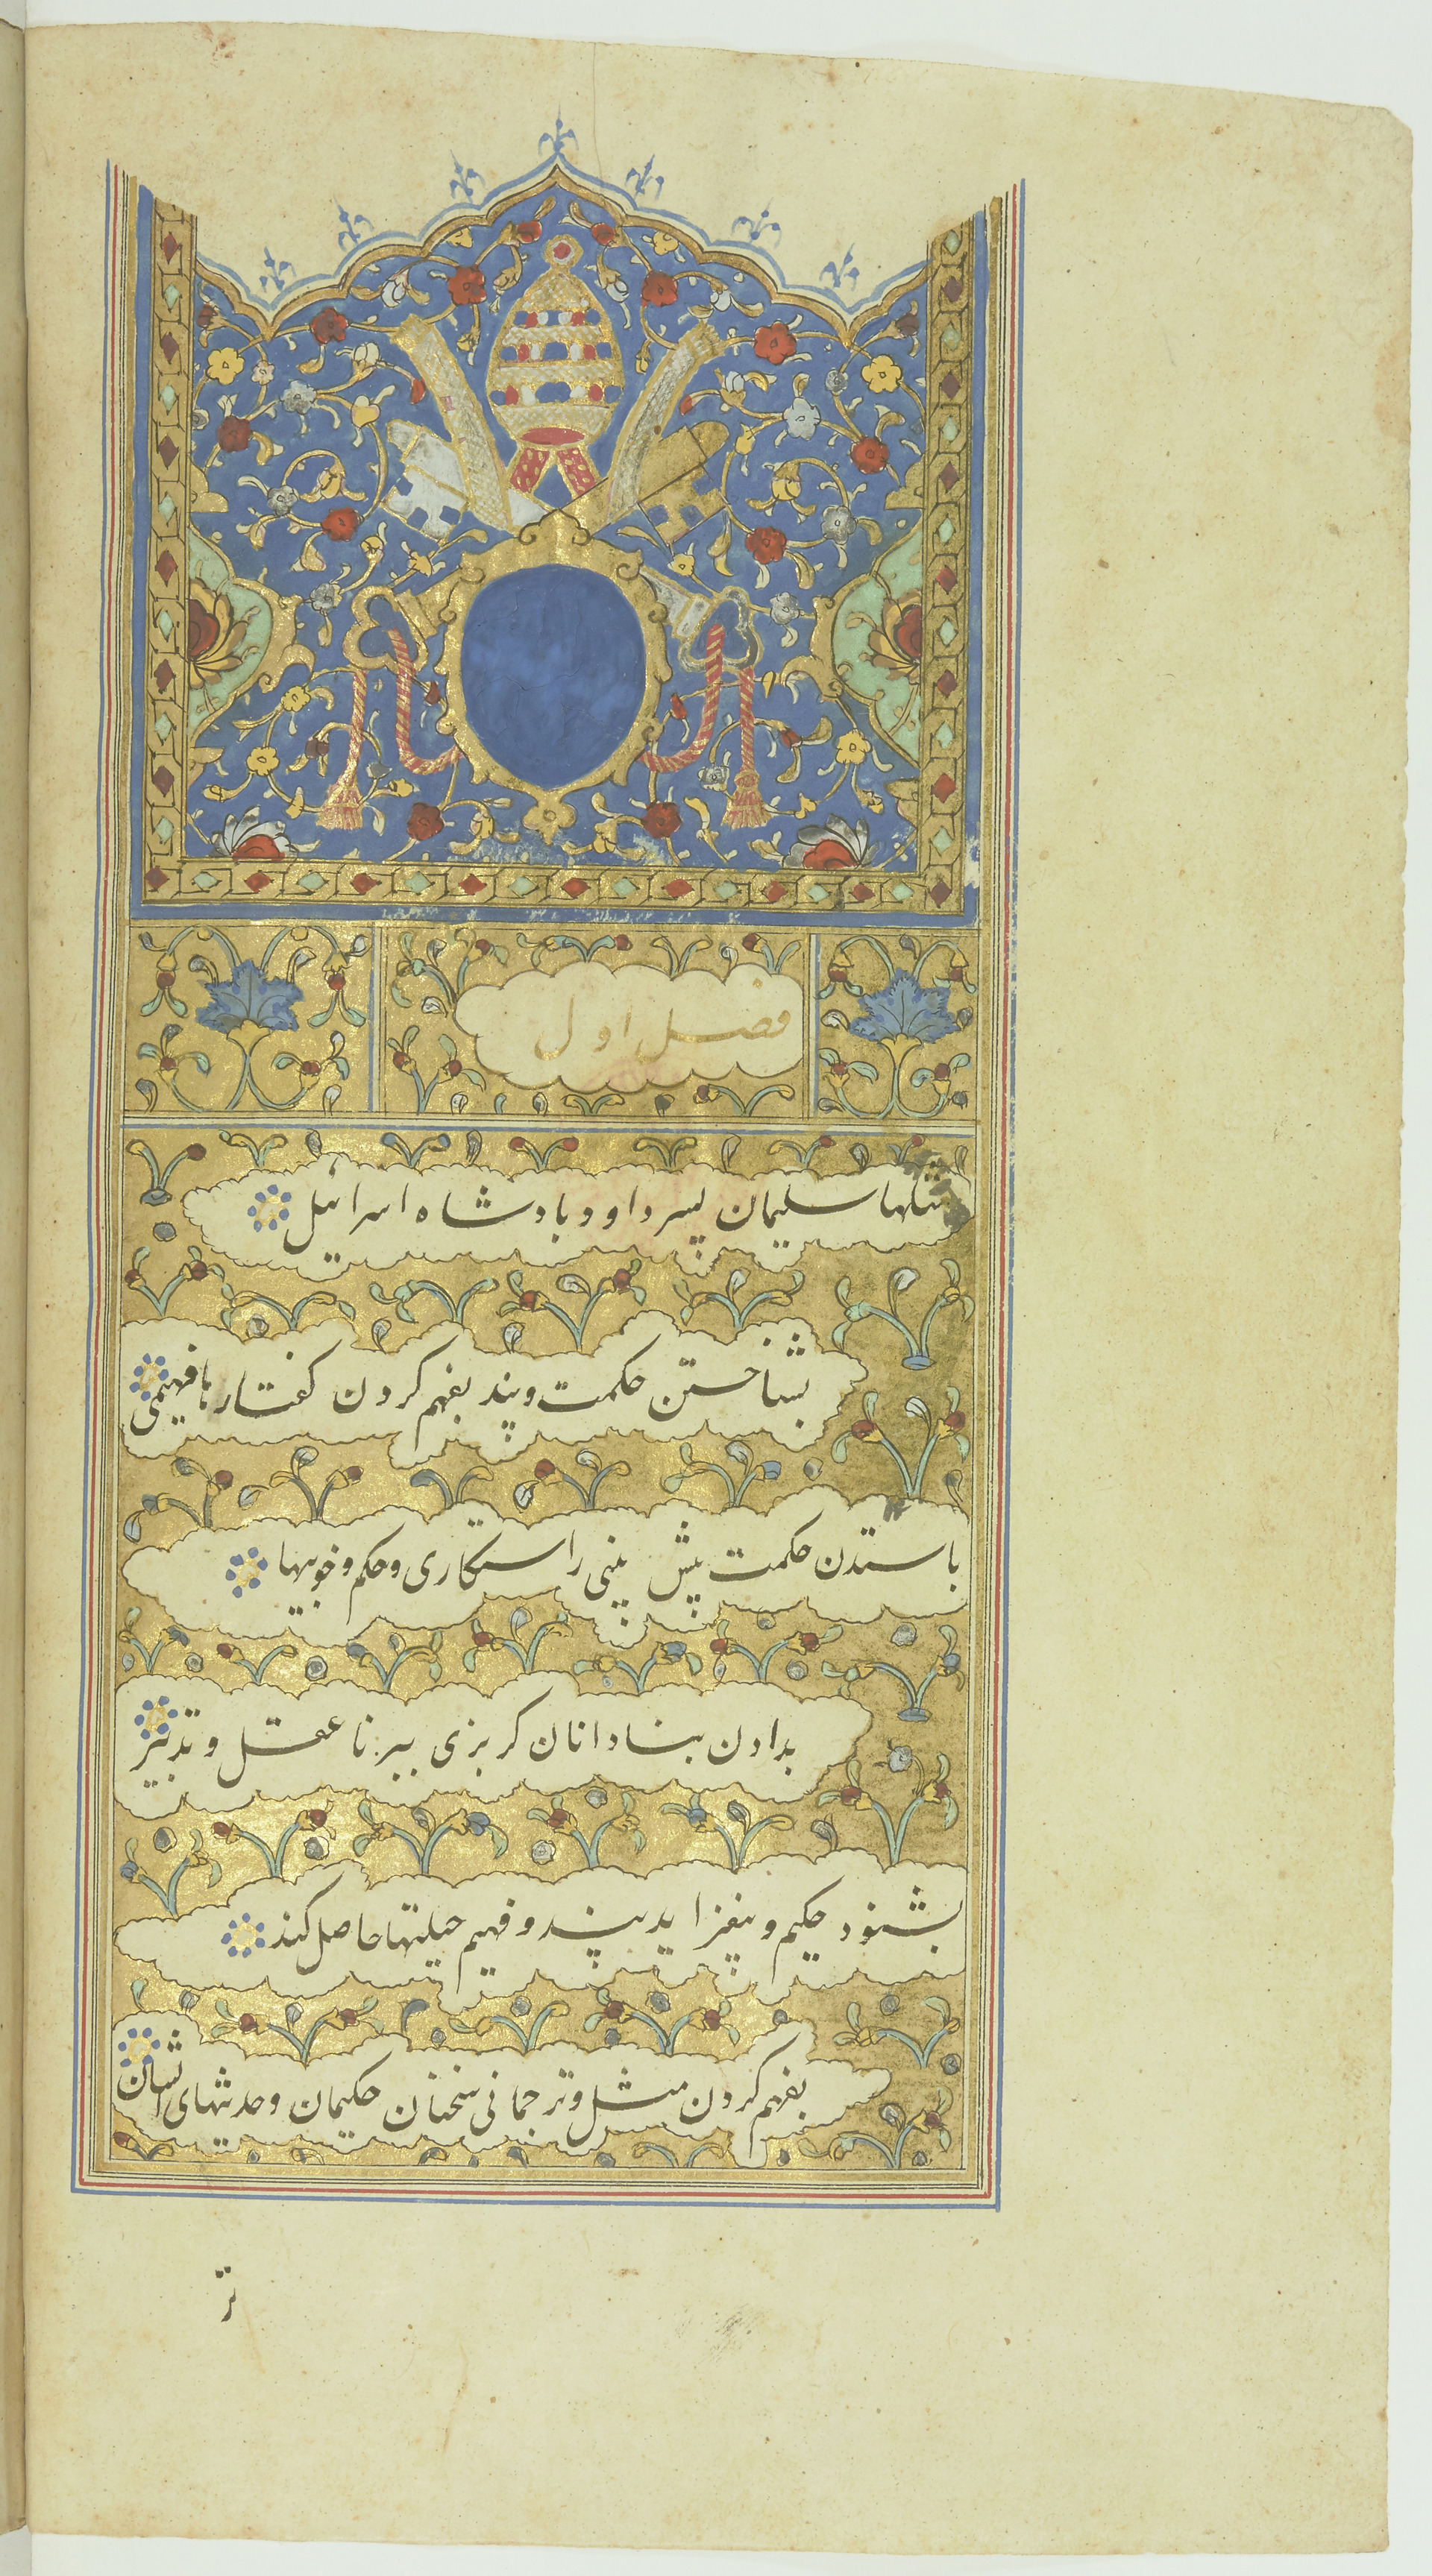 فصل اول
مثلها سلیمان پسر داوود بادشاه اسرائیل
بشناختن حکمت و پند بفهم کردن کفتارها فهیمی
باستدن حکمت پیش بینی راستکاری و حکم و خوبیها
بدادن بنادانان کربزی ببرنا عقل و تدبیر
بشنود حکیم و بیفزاید پند و فهیم حیلتها حاصل کند
بفهم کردن مثل و ترجمانی سخنان حکیمان و حدیثهای اشان
تر